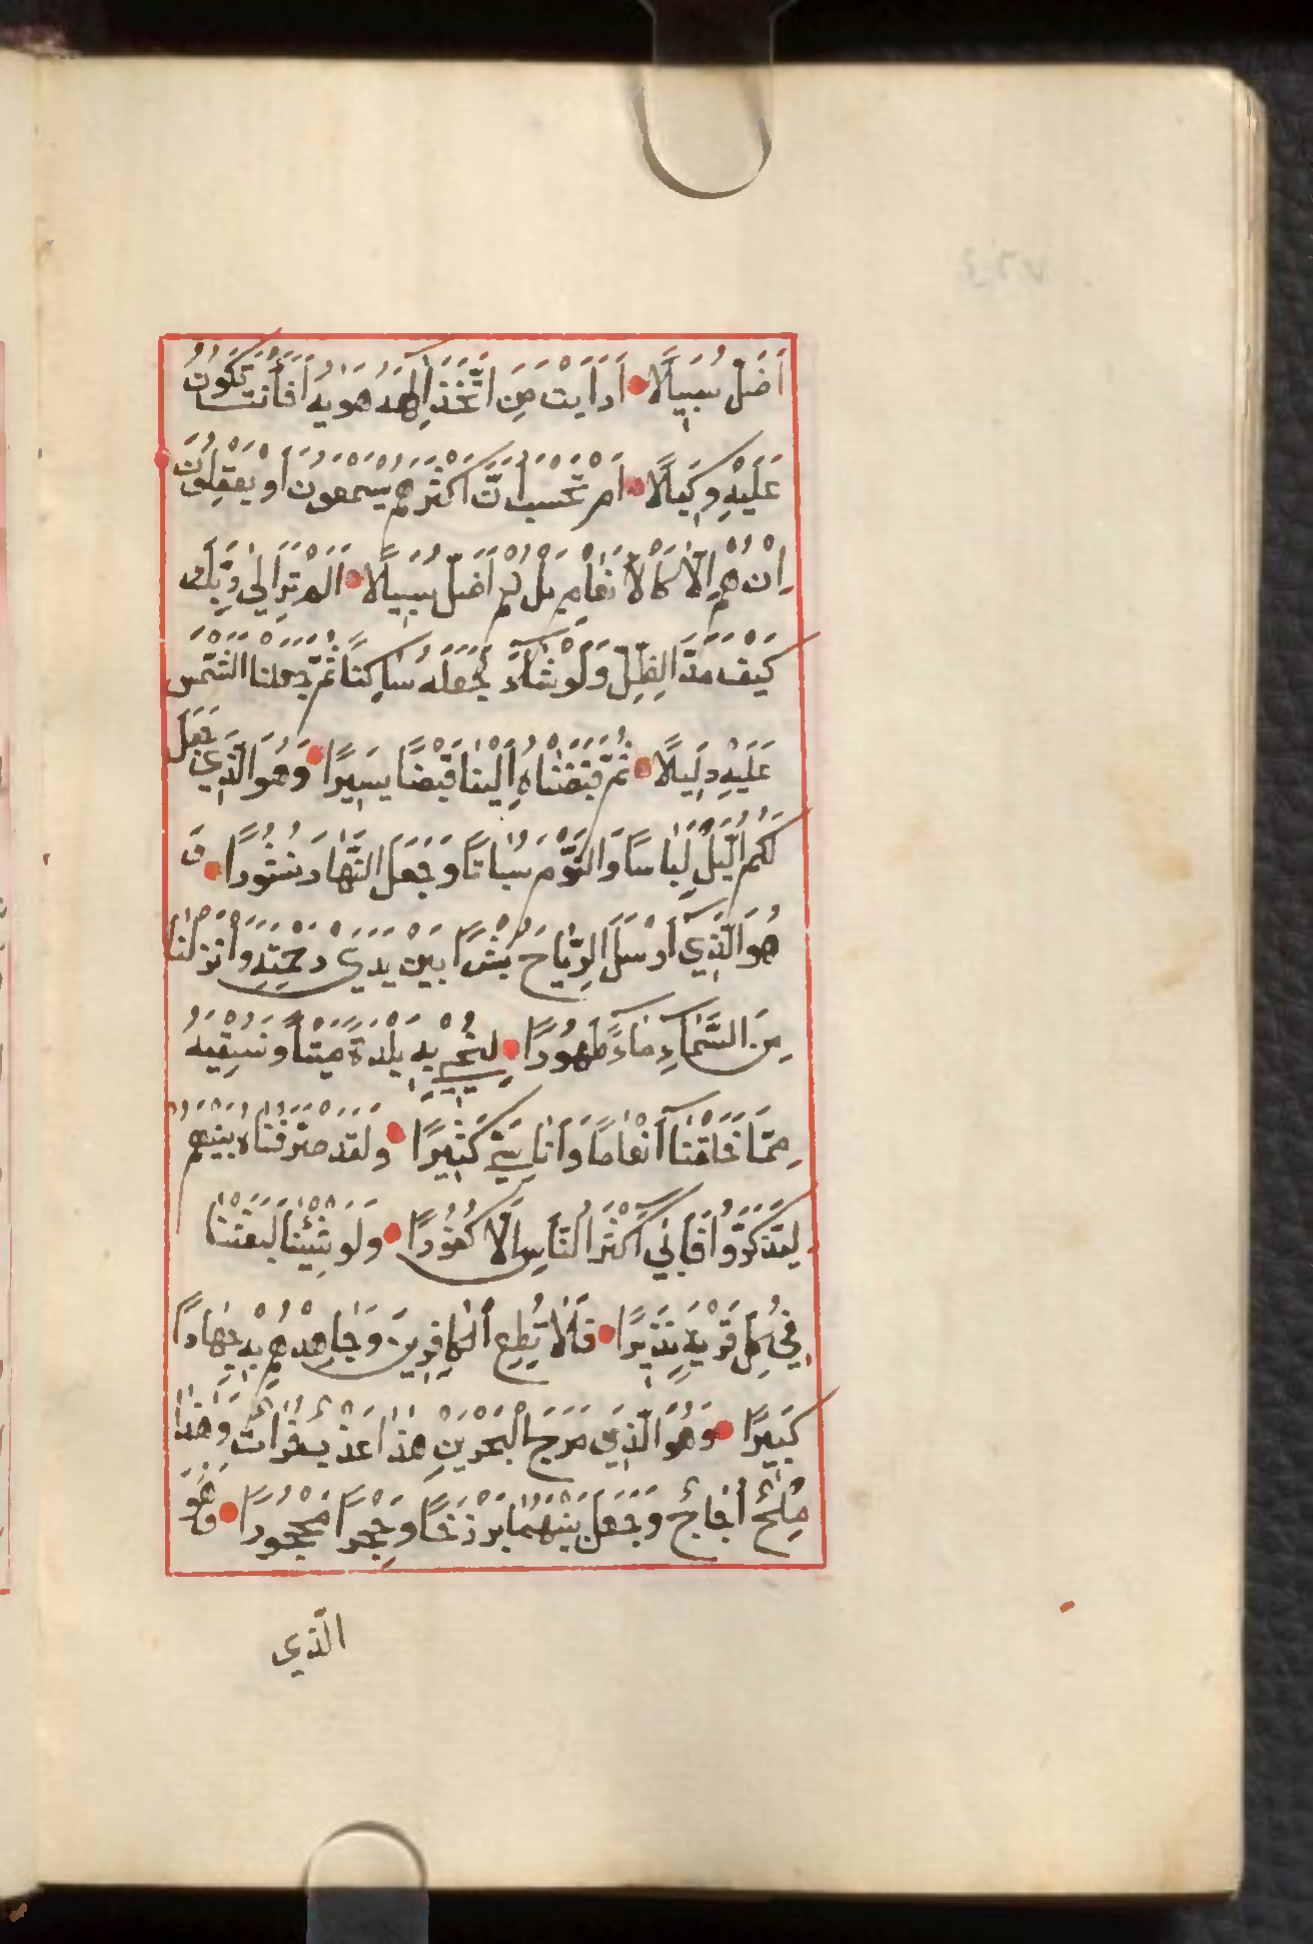 اَضَلُّ سَبِيلًا اَرَاَيْتَ مَنِ اتَّخَذَ اِلٰهَهُ هَوٰيهُ اَفَاَنْتَ تَكُونُ
عَلَيْهِ وَكِيلًا اَمْ تَحْسَبُ اَنَّ اَكْثَرَهُمْ يَسْمَعُونَ اَوْ يَعْقِلُونَ
اِنْ هُمْ اِلَّا كَالْاَنْعَامِ بَلْ هُمْ اَضَلُّ سَبِيلًا اَلَمْ تَرَ اِلٰى رَبِّكَ
كَيْفَ مَدَّ الظِّلَّ وَلَوْ شَاءَ لَجَعَلَهُ سَاكِنًا ثُمَّ جَعَلْنَا الشَّمْسَ
عَلَيْهِ دَلِيلًا ثُمَّ قَبَضْنَاهُ اِلَيْنَا قَبْضًا يَسِيرًا وَهُوَ الَّذِي جَعَلَ
لَكُمُ الَّيْلَ لِبَاسًا وَالنَّوْمَ سُبَاتًا وَجَعَلَ النَّهَارَ نُشُورًا وَ
هُوَ الَّذِي اَرْسَلَ الرِّيَاحَ بُشْرًا بَيْنَ يَدَيْ رَحْمَتِهِ وَاَنْزَلْنَا
مِنَ السَّمَاءِ مَاءً طَهُورًا لِنُحْيِيَ بِهِ بَلْدَةً مَيْتًا وَنُسْقِيَهُ
مِمَّا خَلَقْنَا اَنْعَامًا وَاَنَاسِيَّ كَثِيرًا وَلَقَدْ صَرَّفْنَاهُ بَيْنَهُمْ
لِيَذَّكَّرُوا فَاَبٰى اَكْثَرُ النَّاسِ اِلَّا كُفُورًا وَلَوْ شِئْنَا لَبَعَثْنَا
فِي كُلِّ قَرْيَةٍ نَذِيرًا فَلَا تُطِعِ الْكَافِرِينَ وَجَاهِدْهُمْ بِهِ جِهَادًا
كَبِيرًا وَهُوَ الَّذِي مَرَجَ الْبَحْرَيْنِ هٰذَا عَذْبٌ فُرَاتٌ وَهٰذَا
مِلْحٌ اُجَاجٌ وَجَعَلَ بَيْنَهُمَا بَرْزَخًا وَحِجْرًا مَحْجُورًا وَهُوَ
الَّذِي